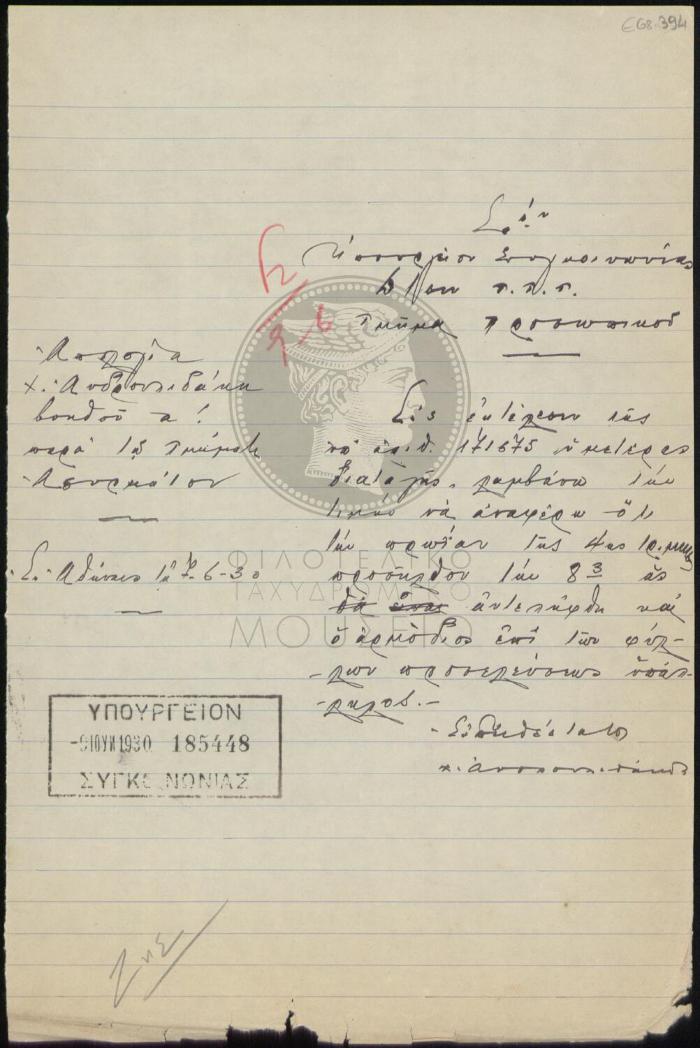 EG8.394
Στὸ
Ὑπουργεῖον Συγκοινωνίας
Δ/σιν Τ.Τ.Τ.
Τμῆμα Προσωπικοῦ
9-6
Ἀπολογία
Χ. Ἀνδρουλιδάκη
βοηθοῦ α!
παρὰ τῷ Τμήματι
Ἀσυρμάτου
Ἐν Ἀθήναις τῇ 7-6-30
Εἰς ἐκτέλεσιν τῆς
ὑπ' ἀριθ. 171675 ὑμετέρας
διαταγῆς, λαμβάνω τὴν
τιμὴν νὰ ἀναφέρω ὅτι
τὴν πρωΐαν τῆς 4ης τρ. μηνὸς
προσῆλθον τὴν 8 3 ὡς
θὰ ἀντελήφθη καὶ
ὁ ἁρμόδιος ἐπὶ τῶν φύλ-
-λων προσελεύσεως ὑπάλ-
-ληλος.-
Εὐπειθέστατος
Χ. Ἀνδρουλιδάκης
ΥΠΟΥΡΓΕΙΟΝ
-9 ΙΟΥΝ 1930 185448
ΣΥΓΚΟΙΝΩΝΙΑΣ
ΦΙΛΟΤΕΛΙΚΟ
ΤΑΧΥΔΡΟΜΙΚΟ
ΜΟΥΣΕΙΟ